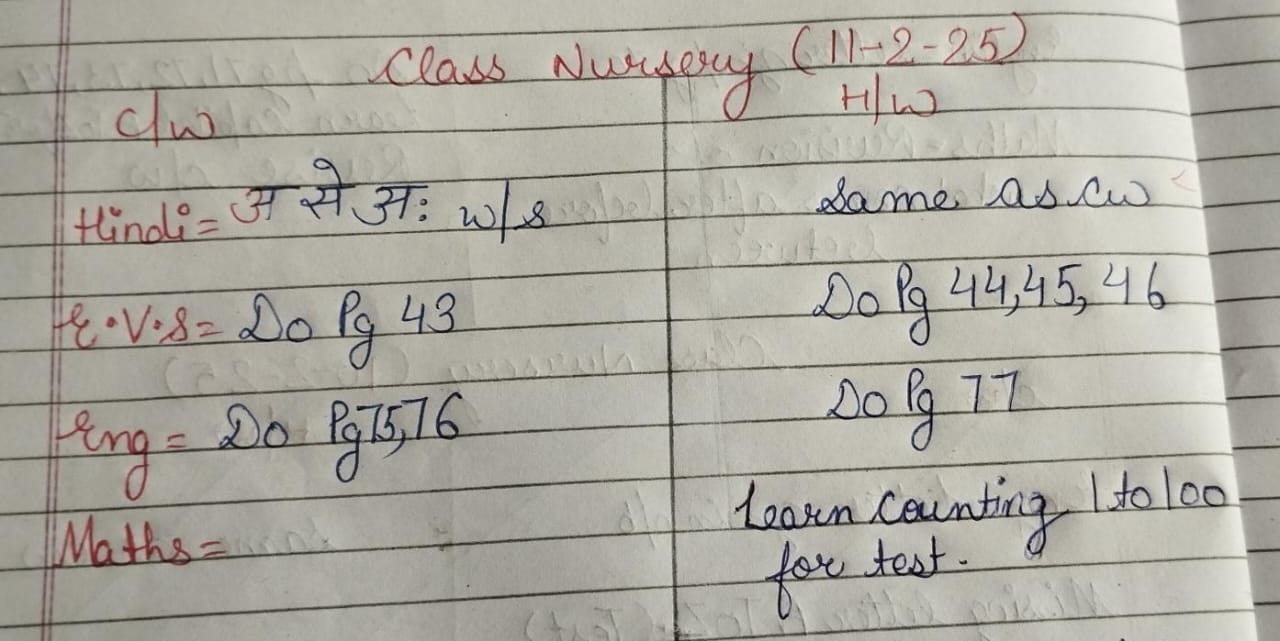 Class Nursery (11-2-25)
C/w H/w
Hindi = अ से अः w/s Same as cw
E.V.S = Do Pg 43 Do Pg 44,45, 46
Eng = Do Pg 75,76 Do Pg 77
Maths = Learn counting 1 to 100
for test.